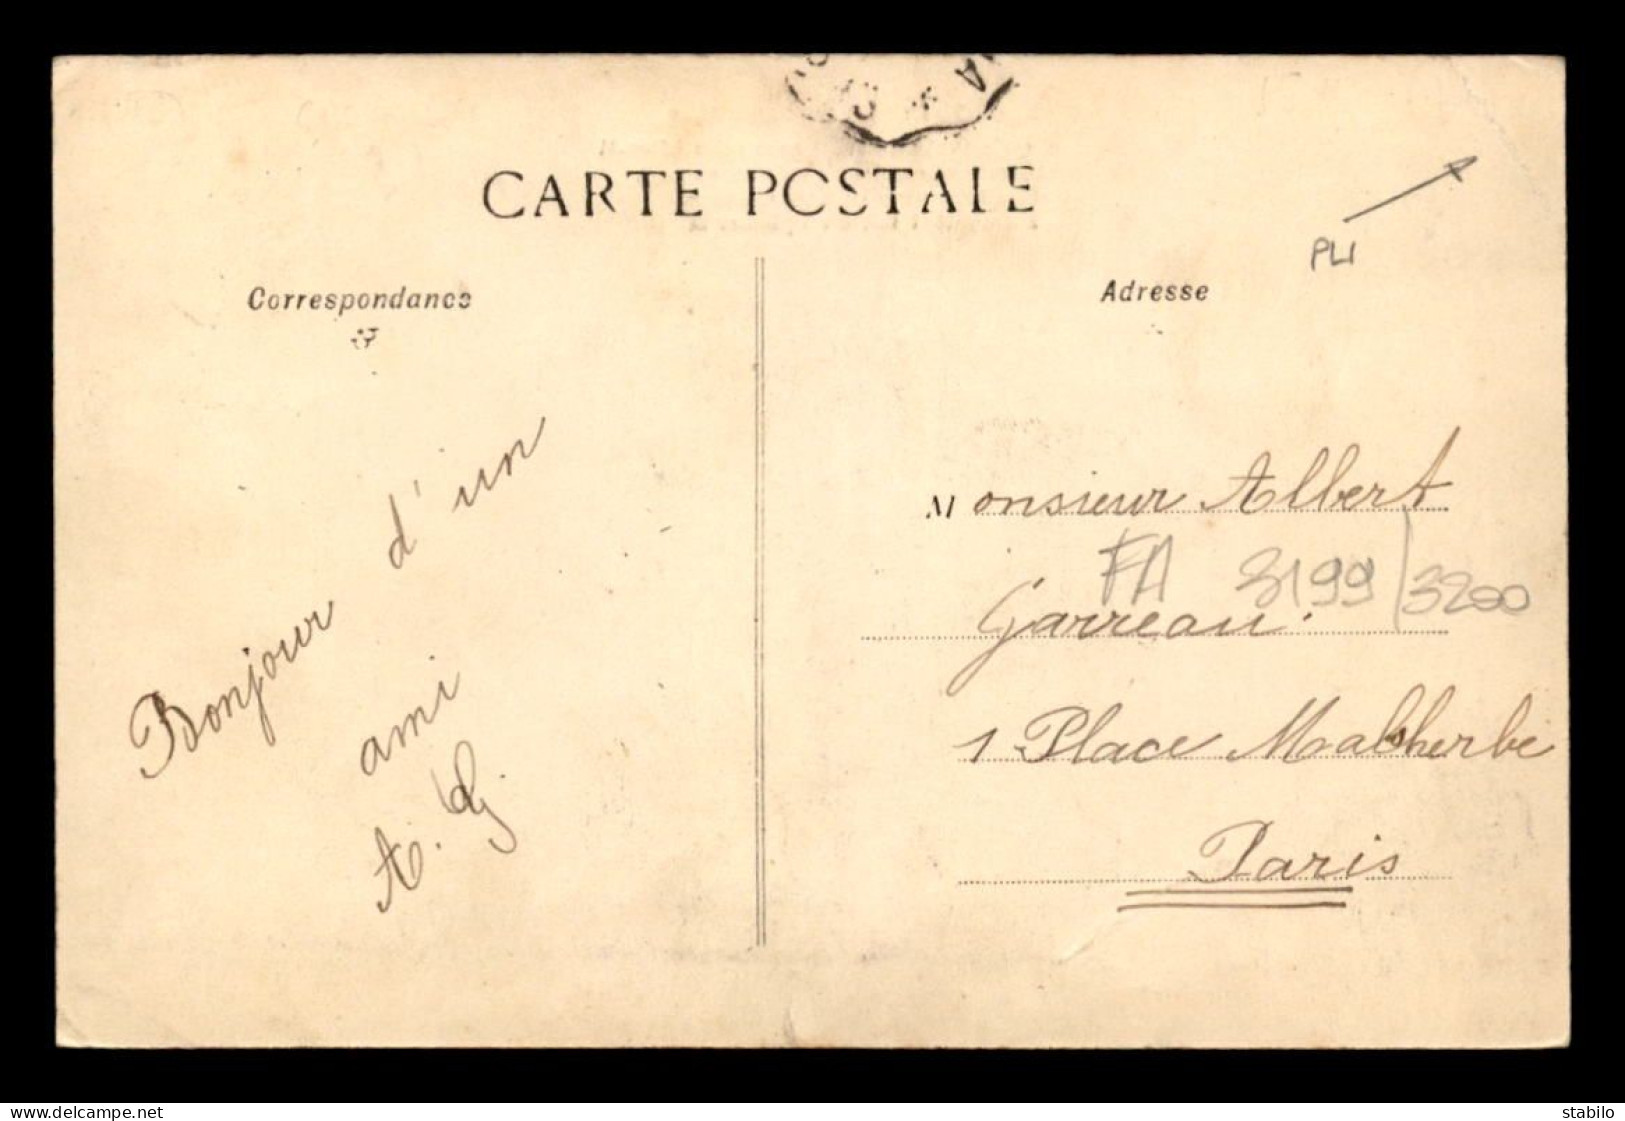 CARTE POSTALE
PLI
Correspondance
Adresse
Bonjour d'un
ami
A. G.
Monsieur Albert
FA 3199/3200
Garreau.
1 Place Malsherbe
Paris
www.delcampe.net
stabilo